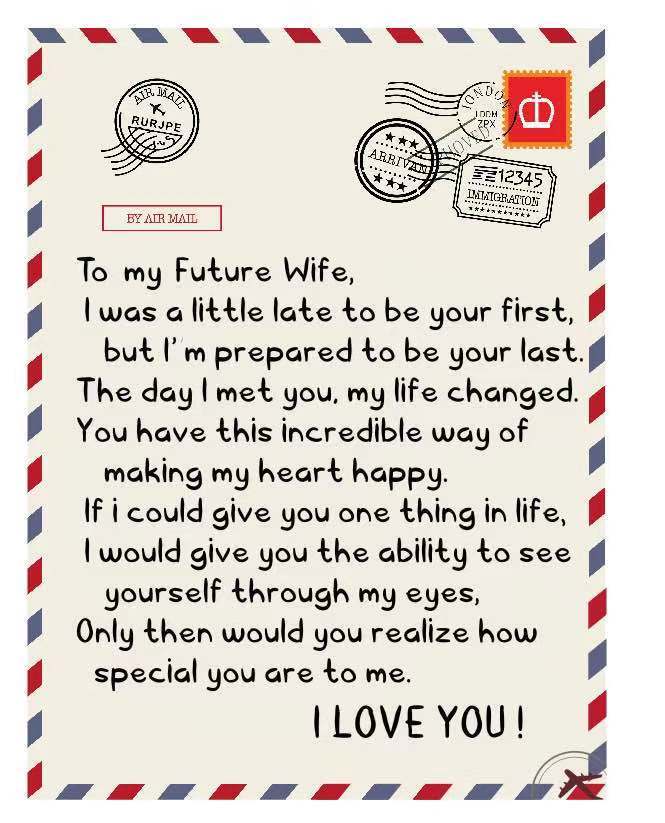 AIR MAIL
RURJPE
LONDON
LOOM
ZPX
MOVED
ARRIVAL
12345
IMMIGRATION
BY AIR MAIL
To my Future Wife,
I was a little late to be your first,
but I'm prepared to be your last.
The day I met you, my life changed.
You have this incredible way of
making my heart happy.
If i could give you one thing in life,
I would give you the ability to see
yourself through my eyes,
Only then would you realize how
special you are to me.
I LOVE YOU!